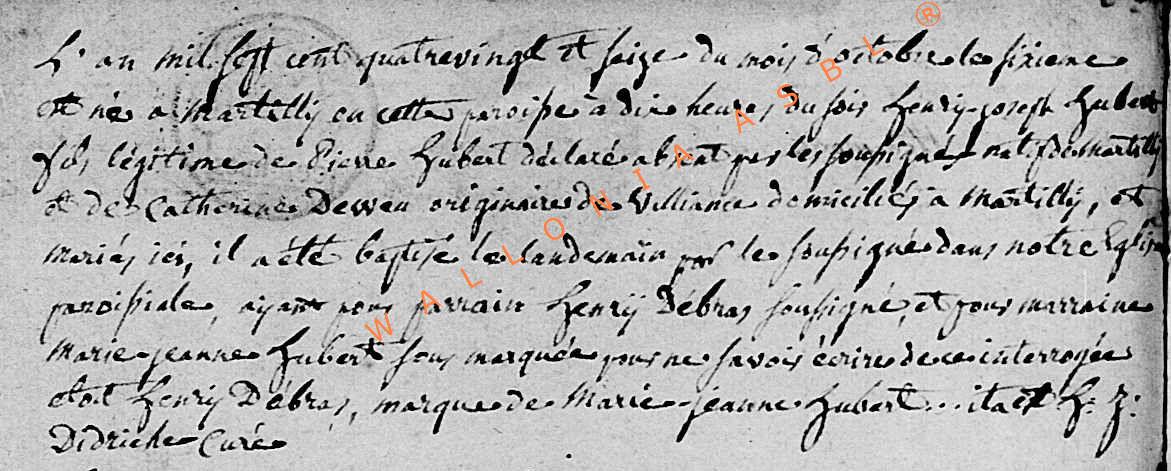 L'an mil sept cent quatrevingt et seize du mois d'octobre le sixieme
est né a Martilly en cette paroisse à dix heures du soir Henry joseph Hubert
fils légitime de Pierre Hubert déclaré absent par les soussignés natif de Martilly
et de Catherine Deweu originaire de Villiance domiciliés à Martilly, et
mariés ici, il a été baptisé le landemain par le soussigné dans notre Eglise
paroissiale, ayant pour parrain Henrÿ Débras soussigné, et pour marraine
Marie jeanne Hubert sous marquée pour ne savoir écrire de ce interrogée
Henrÿ Débras, marque de Marie jeanne Hubert ... ita est H: J:
Didriche Curé
WALLONIA ASBL ®